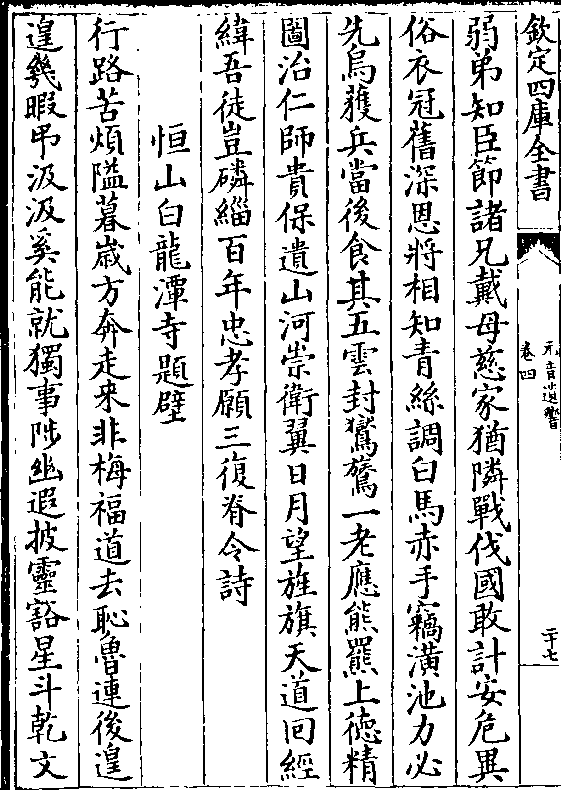 欽定四庫全書
元音遺響
卷四
二十七
弱弟知臣節諸兄戴母慈家猶隣戰伐國敢計安危異
俗衣冠舊深恩將相知青絲調白馬赤手竊潢池力必
先烏獲兵當後食其五雲封鸑鷟一老應熊羆上德精
圖治仁師貴保遺山河崇衛翼日月望旌旗天道回經
緯吾徒豈磷緇百年忠孝願三復脊令詩
恒山白龍潭寺題壁
行路苦煩隘暮歲方奔走来非梅福道去恥魯連後遑
遑幾暇帀汲汲奚能就獨事陟幽遐披靈豁星斗乾文